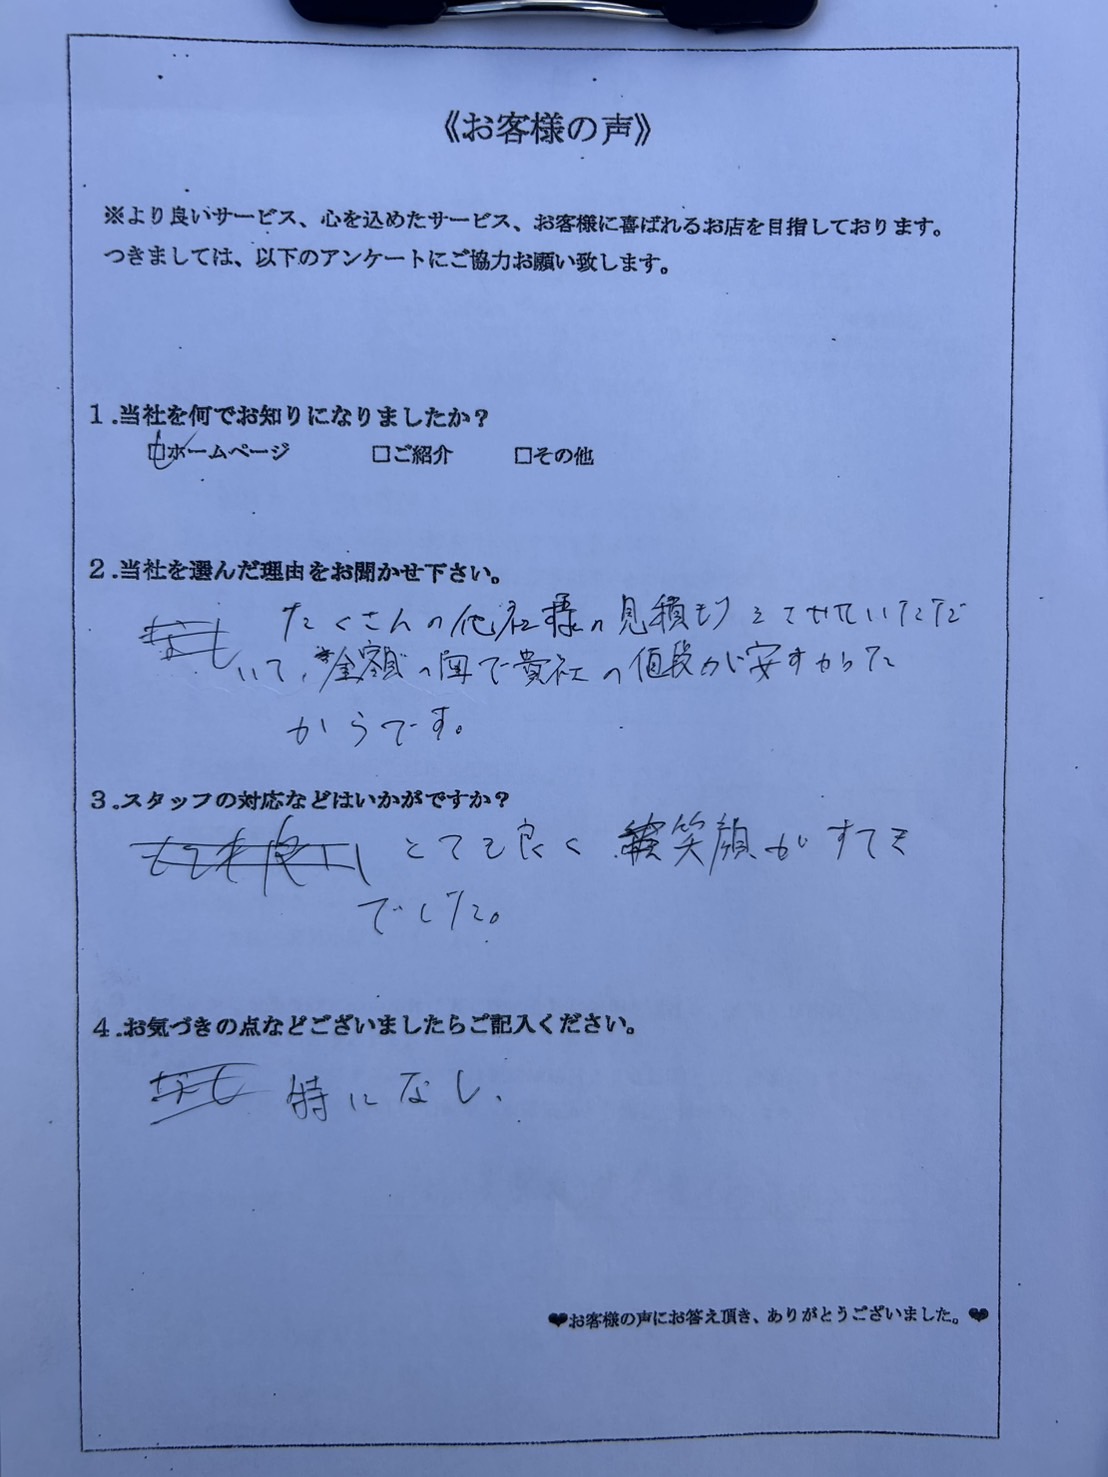 《お客様の声》
※より良いサービス、心を込めたサービス、お客様に喜ばれるお店を目指しております。
つきましては、以下のアンケートにご協力お願い致します。
1.当社を何でお知りになりましたか？
☑ホームページ □ご紹介 □その他
2.当社を選んだ理由をお聞かせ下さい。
たくさんの他社様の見積もりをさせていただだ
いて、金額の面で貴社の値段が安すかった
からです。
3.スタッフの対応などはいかがですか？
とても良く 笑顔がすてき
でした。
4.お気づきの点などございましたらご記入ください。
特になし、
❤お客様の声にお答え頂き、ありがとうございました。❤